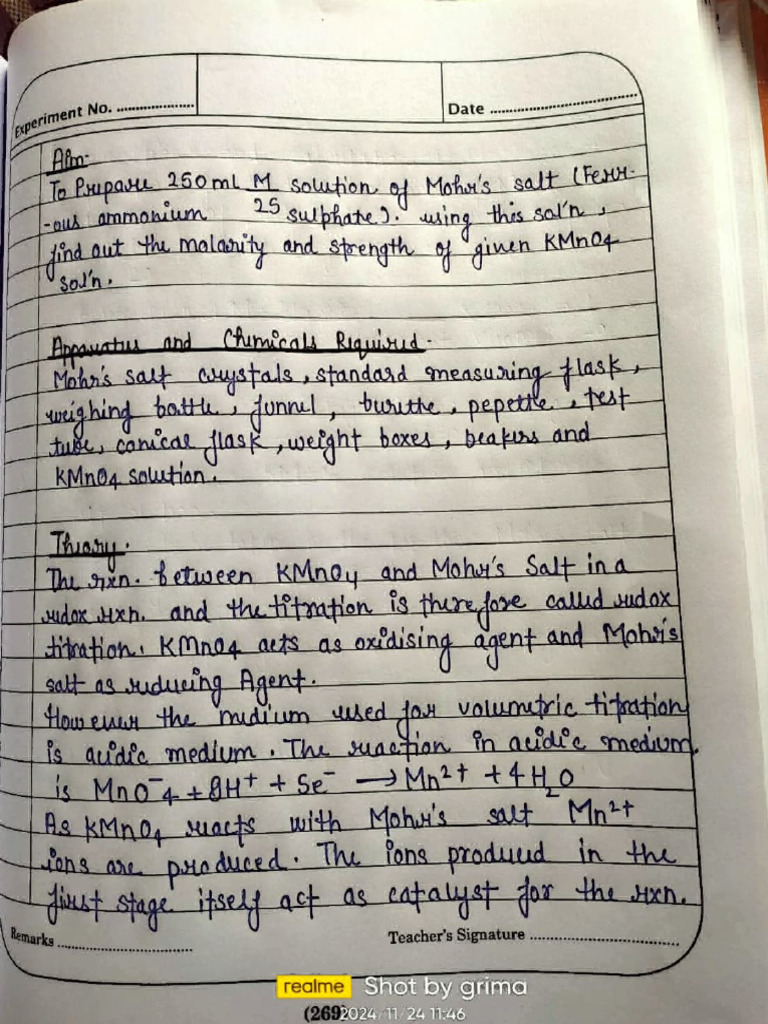 Experiment No. ....................
Date ........................................
Aim:
To Prepare 250ml M solution of Mohr's salt (Ferr-
-ous ammonium 25 sulphate). using this sol'n,
find out the molarity and strength of given KMnO4
sol'n.
Apparatus and Chemicals Required.
Mohr's salt crystals, standard measuring flask,
weighing bottle, funnel, burette, pepette, test
tube, conical flask, weight boxes, beakers and
KMnO4 solution.
Theory.
The rxn. between KMnO4 and Mohr's Salt in a
redox rxn. and the titration is therefore called redox
titration. KMnO4 acts as oxidising agent and Mohr's
salt as reducing Agent.
However the medium used for volumetric titration
is acidic medium. The reaction in acidic medium
is MnO⁻4 + 8H⁺ + 5e⁻ → Mn²⁺ + 4H2O
As KMnO4 reacts with Mohr's salt Mn²⁺
ions are produced. The ions produced in the
first stage itself act as catalyst for the rxn.
Remarks ..............................
Teacher's Signature ..................................
realme Shot by grima
(269) 2024/11/24 11:46